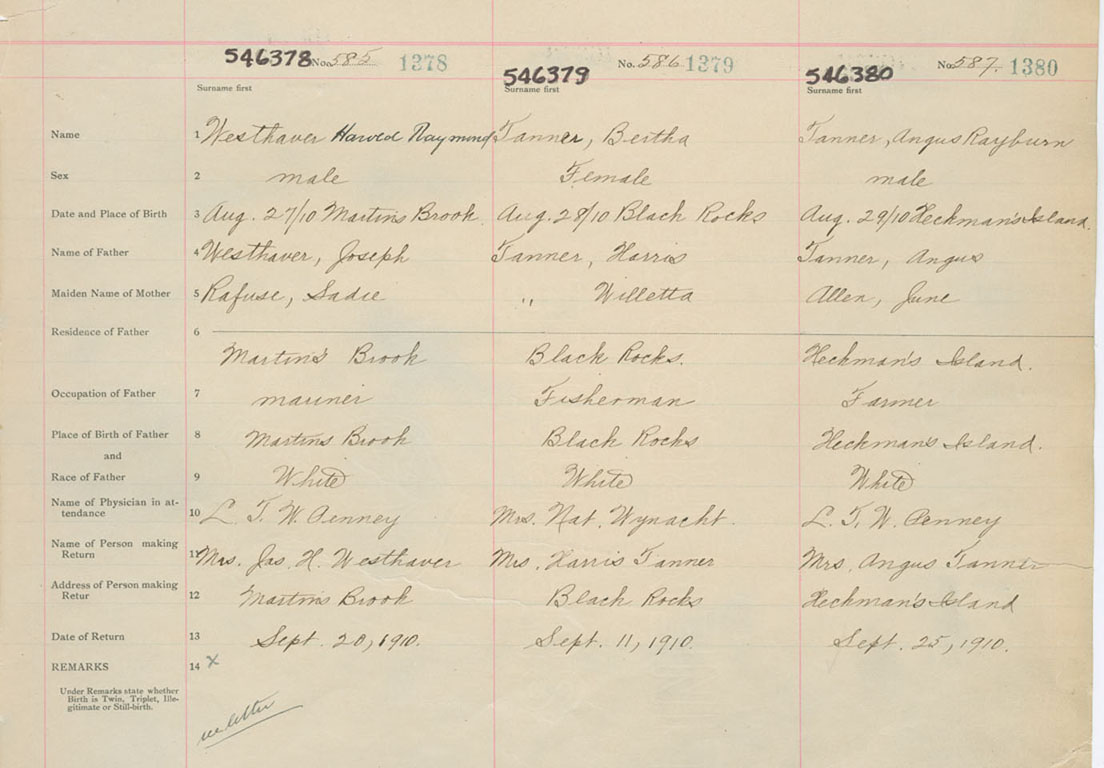 546378 No. 585 1378 546379 No. 586 1379 546380 No. 587. 1380
Surname first Surname first Surname first
Name 1 Westhaver Harold Raymind Tanner, Bertha Tanner, Angus Rayburn
Sex 2 male Female male
Date and Place of Birth 3 Aug. 27/10 Martins Brook Aug. 28/10 Black Rocks Aug. 29/10 Heckman's Island.
Name of Father 4 Westhaver, Joseph Tanner, Harris Tanner, Angus
Maiden Name of Mother 5 Rafuse, Sadie " Willetta Allen, June
Residence of Father 6
Martin's Brook Black Rocks. Heckman's Island.
Occupation of Father 7 mariner Fisherman Farmer
Place of Birth of Father 8 Martins Brook Black Rocks Heckmans Island.
and
Race of Father 9 White White White
Name of Physician in at-
tendance 10 L. T. W. Penney Mrs. Nat. Wynacht. L. T. W. Penney
Name of Person making
Return 11 Mrs. Jas. H. Westhaver Mrs. Harris Tanner Mrs. Angus Tanner
Address of Person making
Retur 12 Martin's Brook Black Rocks Heckman's Island
Date of Return 13 Sept. 20, 1910. Sept. 11, 1910. Sept. 25, 1910.
REMARKS 14 x
Under Remarks state whether
Birth is Twin, Triplet, Ille-
gitimate or Still-birth.
letter